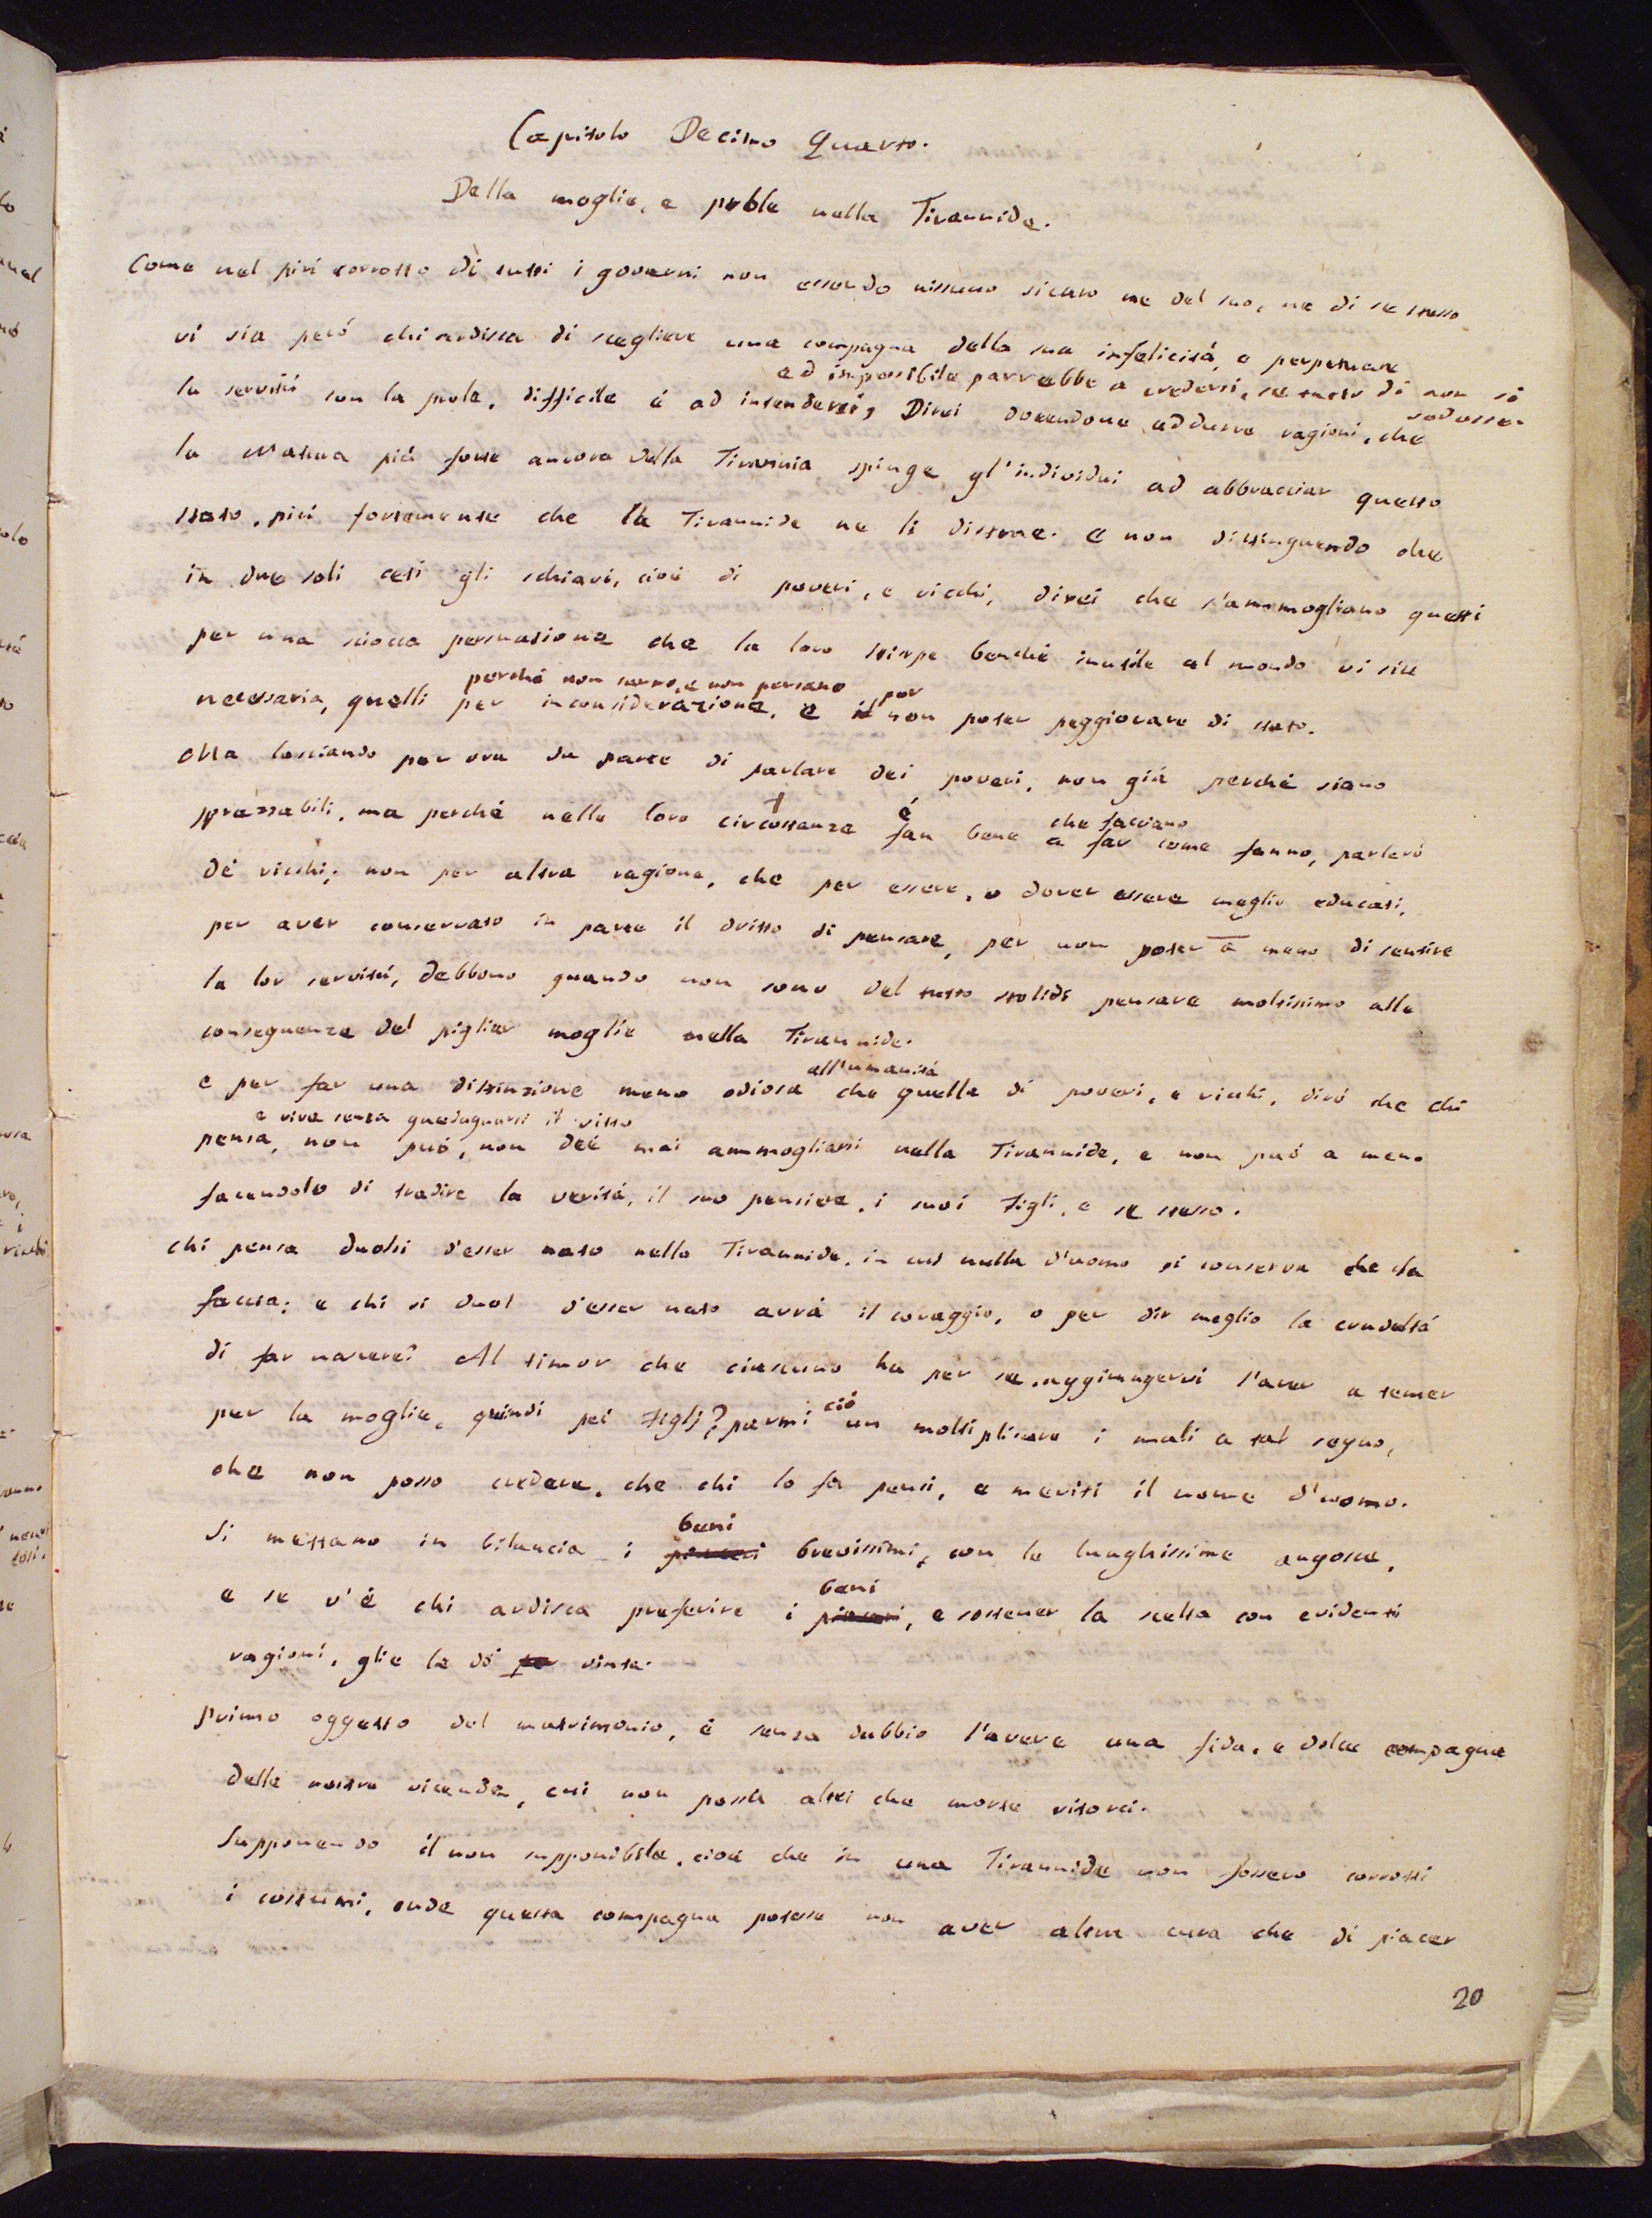 Capitolo Decimo Quarto.
Della moglie, e prole nella Tirannide.
Come nel piú corrotto di tutti i governi non essendo nissuno sicuro ne del suo, ne di se stesso
vi sia peró chi ardisca di scegliere una compagna della sua infelicitá, e perpetuare
ed impossibile parrebbe a credersi, se tutto dí non si vedesse.
la servitú con la prole, difficile é ad intendersi, Direi dovendone addurre ragioni, che
la Natura piú forte ancora della Tirannia spinge gl'individui ad abbracciar questo
stato, piú fortemente che la Tirannide ne li distrae. e non distinguendo che
in due soli ceti gli schiavi, cioé di poveri, e ricchi, direi che s'ammogliano questi
per una sciocca persuasione che la loro stirpe benché inutile al mondo vi sia
perché non sanno, e non pensano per
necessaria, quelli per inconsiderazione, e il non poter peggiorare di stato.
Ma lasciando per ora da parte di parlare dei poveri, non giá perché siano
sprezzabili, ma perché nelle loro circostanze fan bene a far come fanno, parleró
é che facciano
de' ricchi; non per altra ragione, che per essere, o dover essere meglio educati,
per aver conservato in parte il dritto di pensare, per non poter a meno di sentire
la lor servitú, debbono quando non sono del tutto stolidi pensare moltissimo alle
conseguenze del pigliar moglie nella Tirannide.
all'umanitá
e per far una distinzione meno odiosa che quella di poveri, e ricchi, diró che chi
e vive senza guadagnarsi il vitto
pensa, non puó, non dée mai ammogliarsi nella Tirannide, e non puó a meno
facendolo di tradire la veritá, il suo pensiere, i suoi figli, e se stesso.
chi pensa duolsi d'esser nato nella Tirannide, in cui nulla d'uomo si conserva che la
faccia; e chi si duol d'esser nato avrá il coraggio, o per dir meglio la crudeltá
di far nascere? Al timor che ciascuno ha per se, aggiungervi l'aver a temer
ció
per la moglie, quindi pei figlj? parmi un moltiplicare i mali a tal segno,
che non posso credere, che chi lo fa pensi, e meriti il nome d'uomo.
beni
Si mettano in bilancia i piaceri brevissimi, con le lunghissime angosce,
beni
e se v'é chi ardisca preferire i piaceri, e sostener la scelta con evidenti
ragioni, glie la dó per vinta.
primo oggetto del matrimonio, é senza dubbio l'avere una fida, e dolce compagna
delle nostre vicende, cui non possa altri che morte ritorci.
Supponendo il non supponibile, cioé che in una Tirannide non fossero corrotti
i costumi, onde questa compagna potesse non aver altra cura che di piacer
20